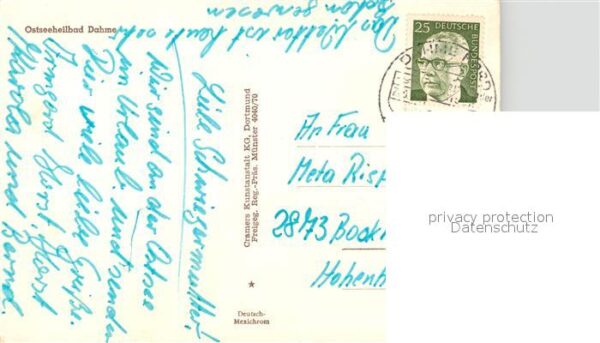 Ostseeheilbad Dahme
Das Wetter ist heute sehr
schön gewesen
Liebe Schwiegermutter!
Wir sind an der Ostsee
im Urlaub und senden
Dir viele liebe Grüße.
Irmgard Horst, Horst
Karola und Bernd.
Cramers Kunstanstalt KG, Dortmund
Freigeg. Reg.-Präs. Münster 4040/70
Deutsch-
Mexichrom
25
DEUTSCHE
BUNDESPOST
An Frau
Meta Risp
2873 Bock
Hohenh
privacy protection
Datenschutz